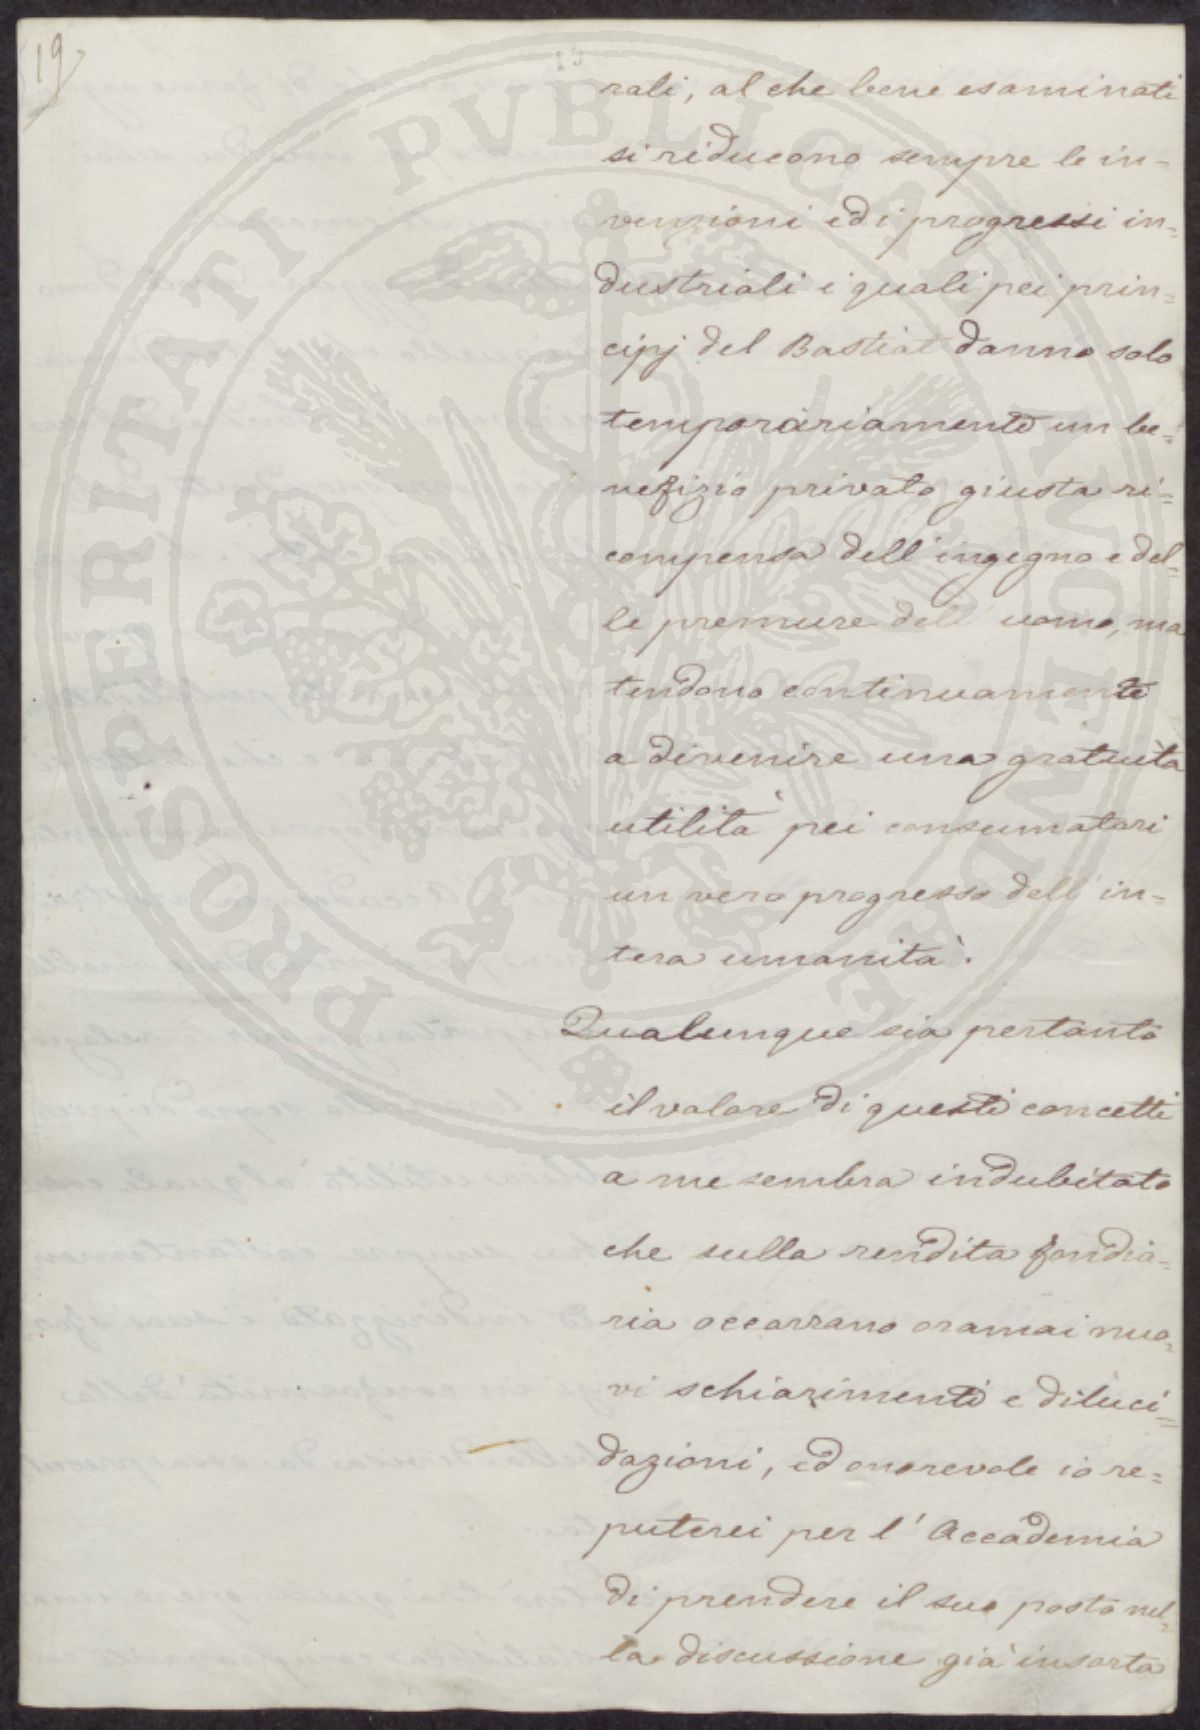 19
rali, al che bene esaminati
si riducono sempre le in=
venzioni ed i progressi in=
dustriali i quali pei prin=
cipj del Bastiat danno solo
temporariamente un be=
nefizio privato giusta ri=
compensa dell'ingegno e del=
le premure dell'uomo, ma
tendono continuamente
a divenire una gratuita
utilità pei consumatori
un vero progresso dell'in=
tera umanità.
Qualunque sia pertanto
il valore di questi concetti
a me sembra indubitato
che sulla rendita fondia=
ria occorrano oramai nuo=
vi schiarimenti e diluci=
dazioni, ed onorevole io re=
puterei per l'Accademia
di prendere il suo posto nel=
la discussione già insorta
PROSPERITATI PVBLICAE AVGENDAE